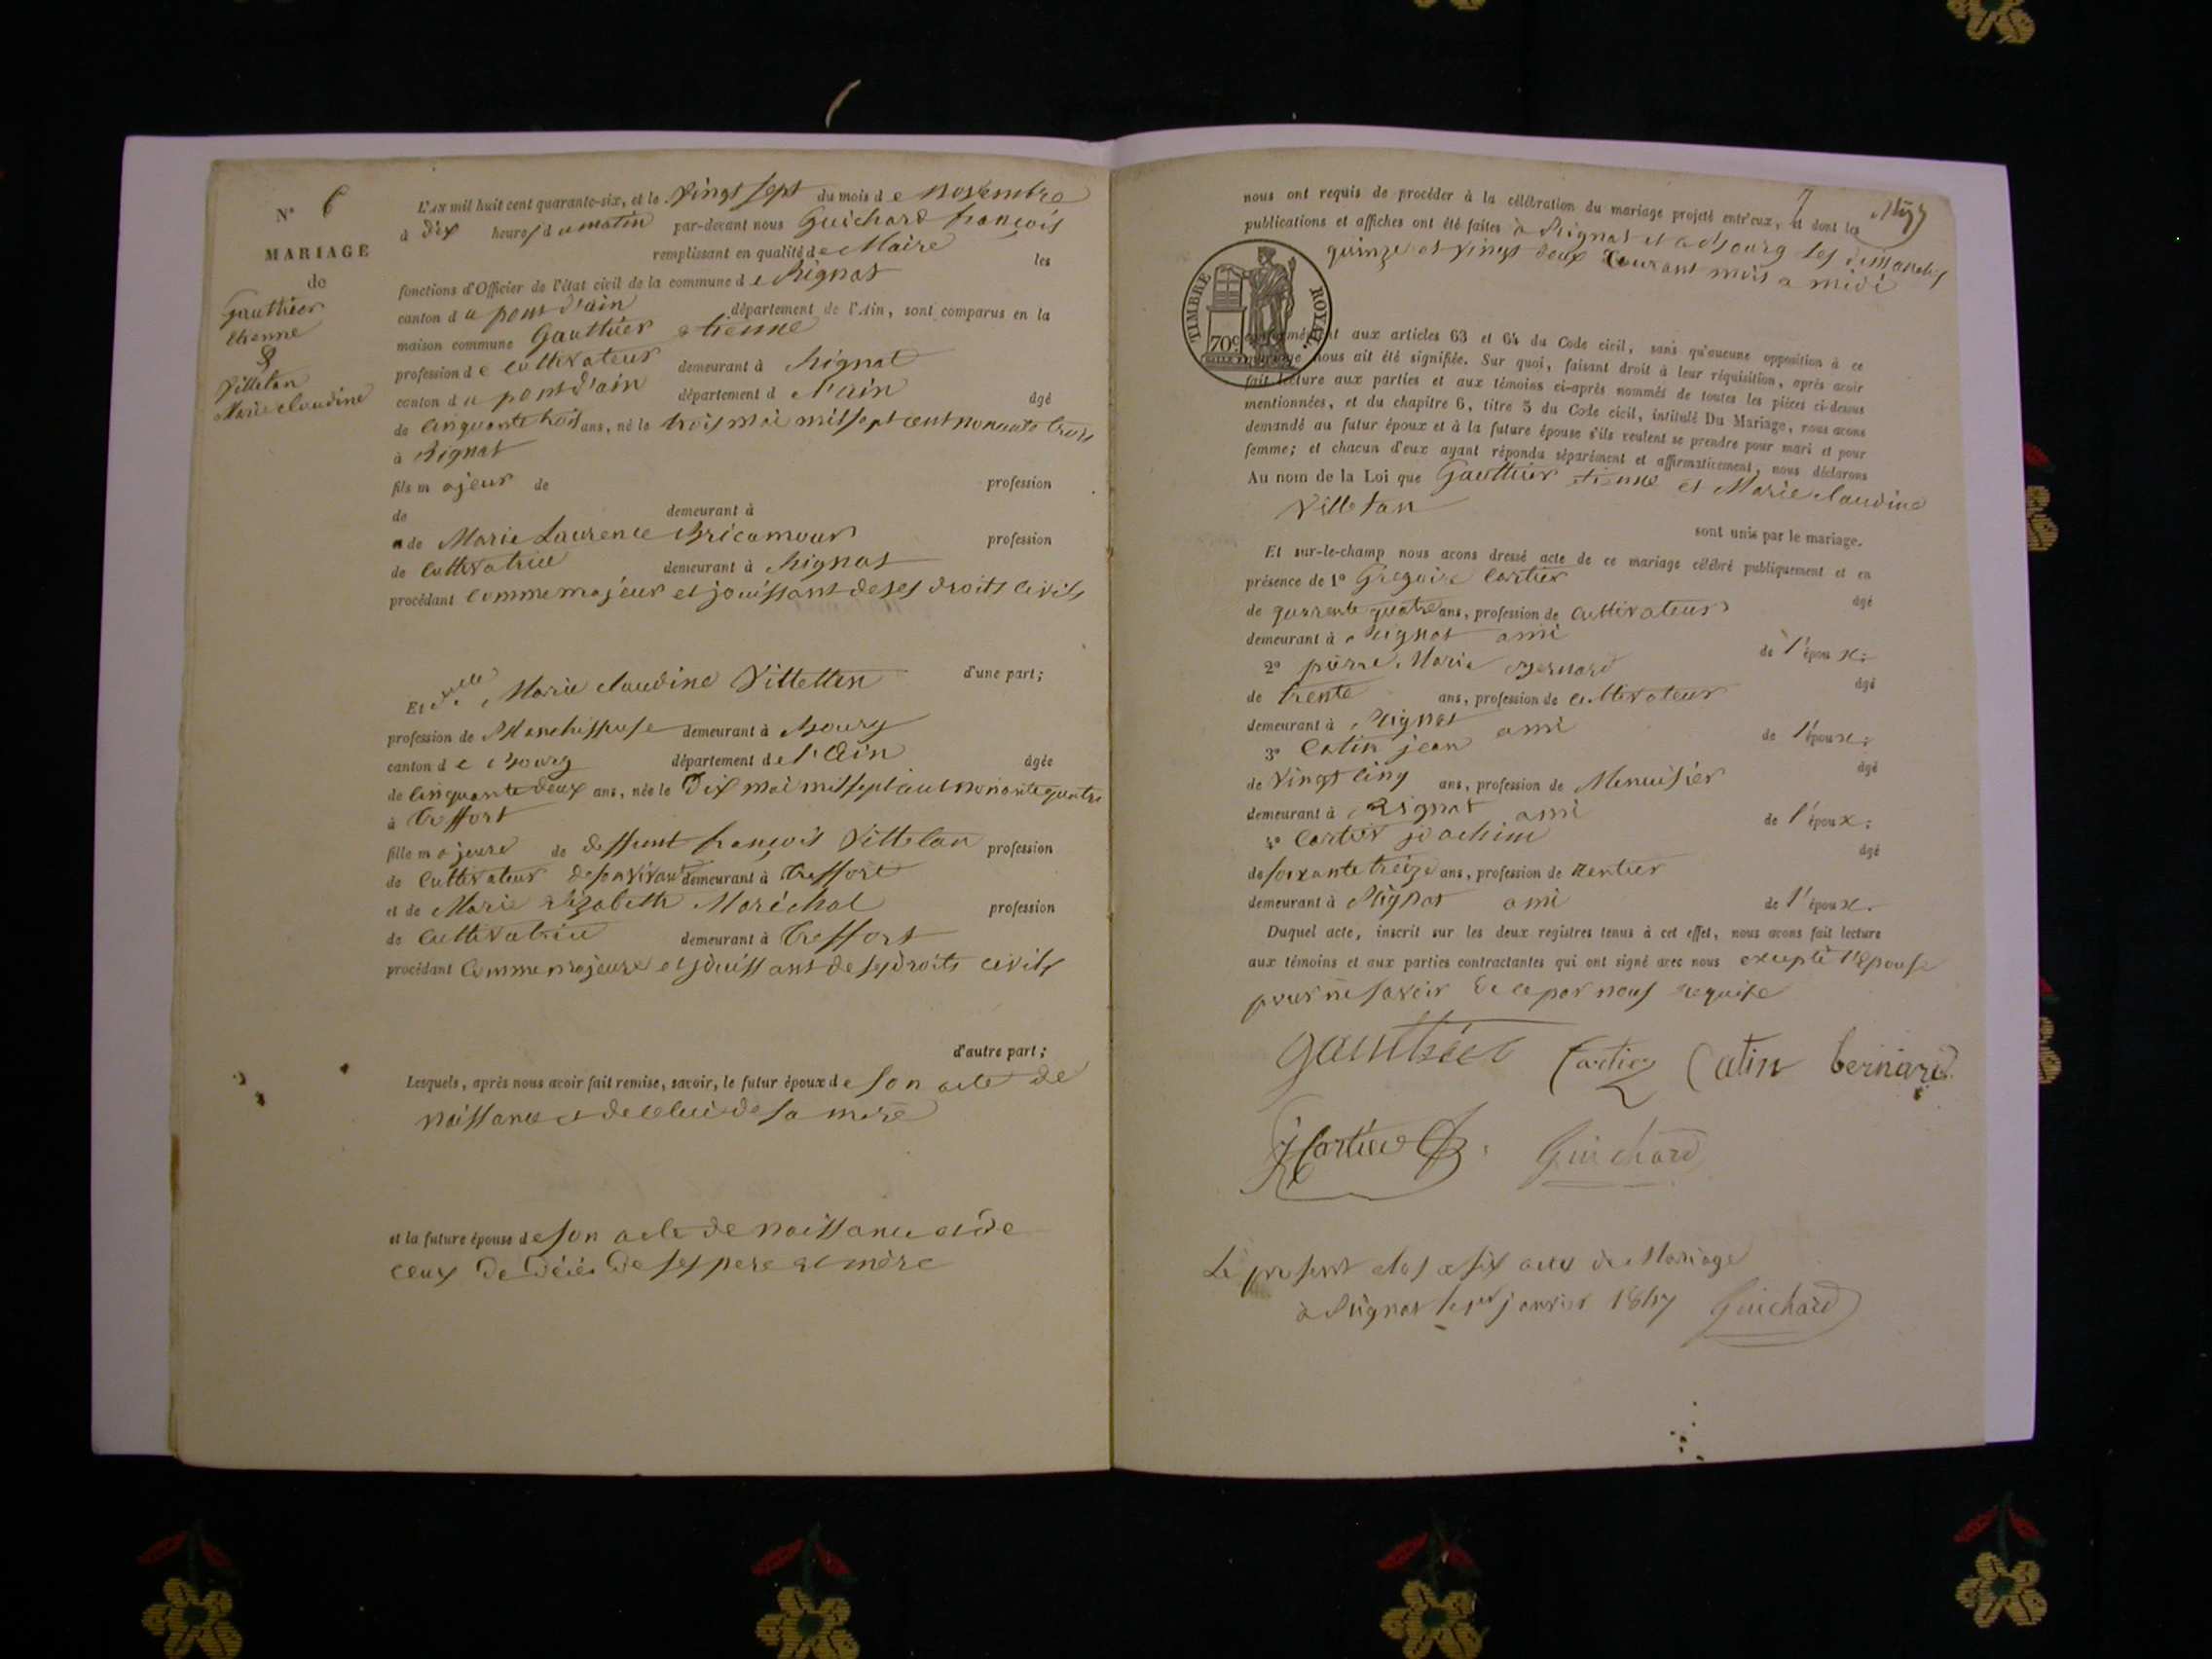 N° 6
MARIAGE
de
Gauthier
etienne
&
Villetan
Marie claudine
L'AN mil huit cent quarante-six, et le Vingt sept du mois de novembre
à dix heures du matin par-devant nous Guichard françois
remplissant en qualité de Maire les
fonctions d'Officier de l'état civil de la commune de Rignat
canton du pont d'ain département de l'Ain, sont comparus en la
maison commune Gauthier etienne
profession de cultivateur demeurant à Rignat
canton du pont d'ain département de l'ain âgé
de cinquante trois ans, né le trois mai mil sept cent nonante trois
à Rignat
fils majeur de profession
de demeurant à
de Marie Laurence Bricamour profession
de cultivatrice demeurant à Rignat
procédant comme majeur et jouissant de ses droits civils
d'une part;
Et delle Marie claudine Villettan
profession de Blanchisseuse demeurant à Bourg
canton de Bourg département de l'Ain âgée
de cinquante deux ans, née le Dix mai mil sept cent nonante quatre
à treffort
fille majeure de deffunt françois Villetan profession
de cultivateur de son vivant demeurant à treffort
et de Marie Elizabeth Maréchal profession
de cultivatrice demeurant à treffort
procédant comme majeure et jouissant de ses droits civils
d'autre part;
Lesquels, après nous avoir fait remise, savoir, le futur époux de son acte de
naissance et de celui de sa mère
et la future épouse de son acte de naissance et de
ceux de décès de ses pere et mère
7
nous ont requis de procéder à la célébration du mariage projeté entr'eux, et dont les
publications et affiches ont été faites à Rignat et à Bourg les dimanches
quinze et vingt deux courant mois a midi
TIMBRE ROYAL
70c
conformément aux articles 63 et 64 du Code civil, sans qu'aucune opposition à ce
mariage nous ait été signifiée. Sur quoi, faisant droit à leur réquisition, après avoir
fait lecture aux parties et aux témoins ci-après nommés de toutes les pièces ci-dessus
mentionnées, et du chapitre 6, titre 5 du Code civil, intitulé Du Mariage, nous avons
demandé au futur époux et à la future épouse s'ils veulent se prendre pour mari et pour
femme; et chacun d'eux ayant répondu séparément et affirmativement, nous déclarons
Au nom de la Loi que Gauthier etienne et Marie claudine
Villetan
sont unis par le mariage.
Et sur-le-champ nous avons dressé acte de ce mariage célébré publiquement et en
présence de 1° Gregoire Cartier âgé
de quarrante quatre ans, profession de cultivateur
demeurant à Rignat ami de l'époux;
2° pierre Marie Bernard âgé
de trente ans, profession de cultivateur
demeurant à Rignat ami de l'époux;
3° Catin jean âgé
de vingt cinq ans, profession de Menuisier
demeurant à Rignat ami de l'époux;
4° Cartier joachim âgé
de soixante treize ans, profession de Rentier
demeurant à Rignat ami de l'époux.
Duquel acte, inscrit sur les deux registres tenus à cet effet, nous avons fait lecture
aux témoins et aux parties contractantes qui ont signé avec nous excepté l'Epouse
pour ne savoir de ce par nous requise
gauthier Cartier Catin bernard
J Cartier Guichard
Le present clos a six actes de Mariage
à Rignat le 1er janvier 1847 Guichard